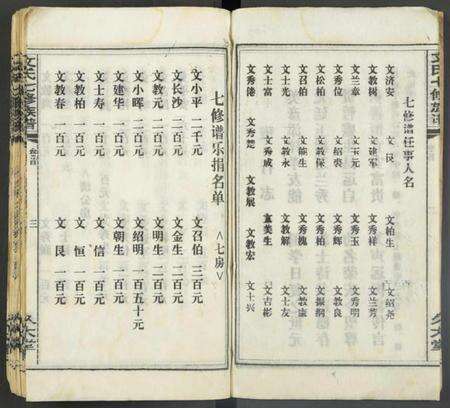 七修谱任事人名
文济安 文艮 文柏生 文绍尧
文教树 文建军 文秀祥 文兰芳
文兰章 文玉元 文秀玉 文秀明
文秀位 文绍裘 文秀辉 文教良
文松柏 文教保 文秀柏 文振纲
文召柏 文顺生 文秀槐 文教康
文士光 文教永 文教解 文士友
文士富 文秀成 文美生 文吉彬
文秀德 文秀楚 文教展 文教宏 文士兴
七修谱乐捐名单 〈七房〉
文小平 二千元 文召伯 三百元
文长沙 三百元 文金生 二百元
文教元 二百元 文明生 二百元
文小晖 二百元 文绍明 一百五十元
文建华 一百元 文朝生 一百元
文士寿 一百元 文信 一百元
文教柏 一百元 文恒 一百元
文教春 一百元 文艮 一百元
文氏七修族谱
三